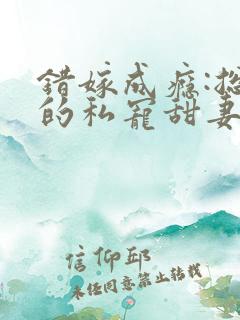 错嫁成瘾:总
的私宠甜妻
信仰邸
未经同意禁止转载